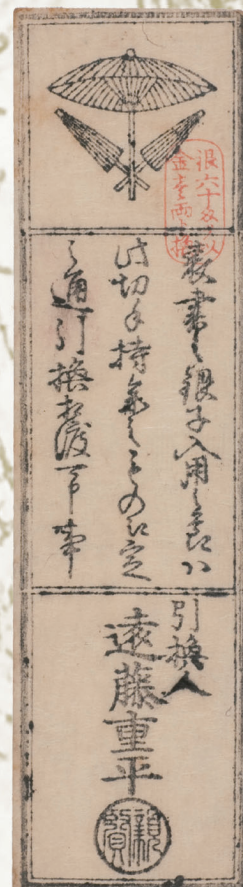 銀六十匁以
金壱両換
裏書之銀子入用之節ハ
此切手持参之もの江定
之通引換相渡可申事
引換人
遠藤重平